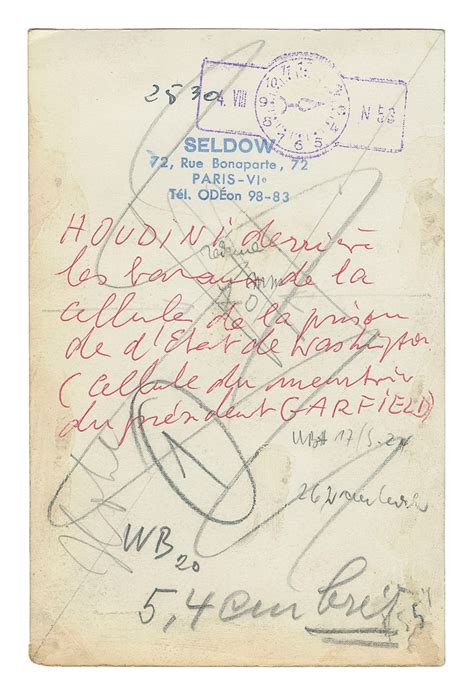 2530
4. VIII N 56
10 11
9
8 7 6 5 4
SELDOW
72, Rue Bonaparte, 72
PARIS-VIe
Tél. ODÉon 98-83
HOUDINI derrière
les barreaux de la
cellule de la prison
de d'Etat de Washington
(cellule du meurtrier
du président GARFIELD)
1
WB
20
5,4 cm breit